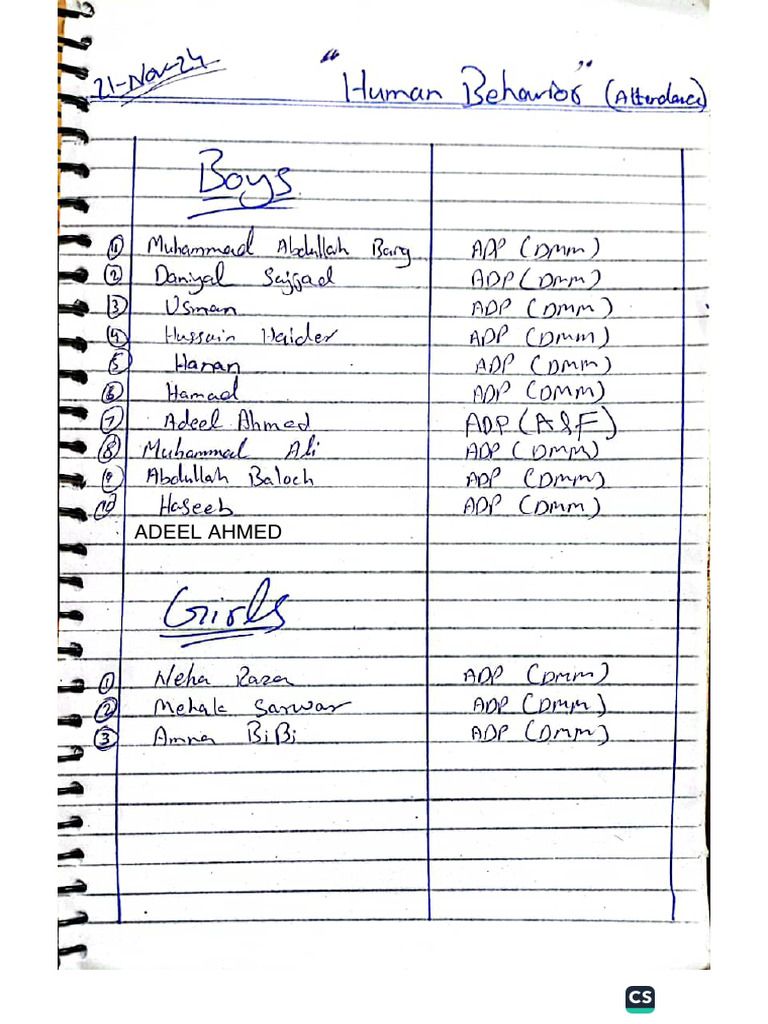 21-Nov-24
"Human Behavior" (Attendance)
Boys
1 Muhammad Abdullah Barg ADP (DMM)
2 Daniyal Sajjad ADP (DMM)
3 Usman ADP (DMM)
4 Hussain Haider ADP (DMM)
5 Hanan ADP (DMM)
6 Hamad ADP (DMM)
7 Adeel Ahmed ADP (A&F)
8 Muhammad Ali ADP (DMM)
9 Abdullah Baloch ADP (DMM)
10 Haseeb ADP (DMM)
ADEEL AHMED
Girls
1 Neha Raza ADP (DMM)
2 Mehak Sarwar ADP (DMM)
3 Amna BiBi ADP (DMM)
CS